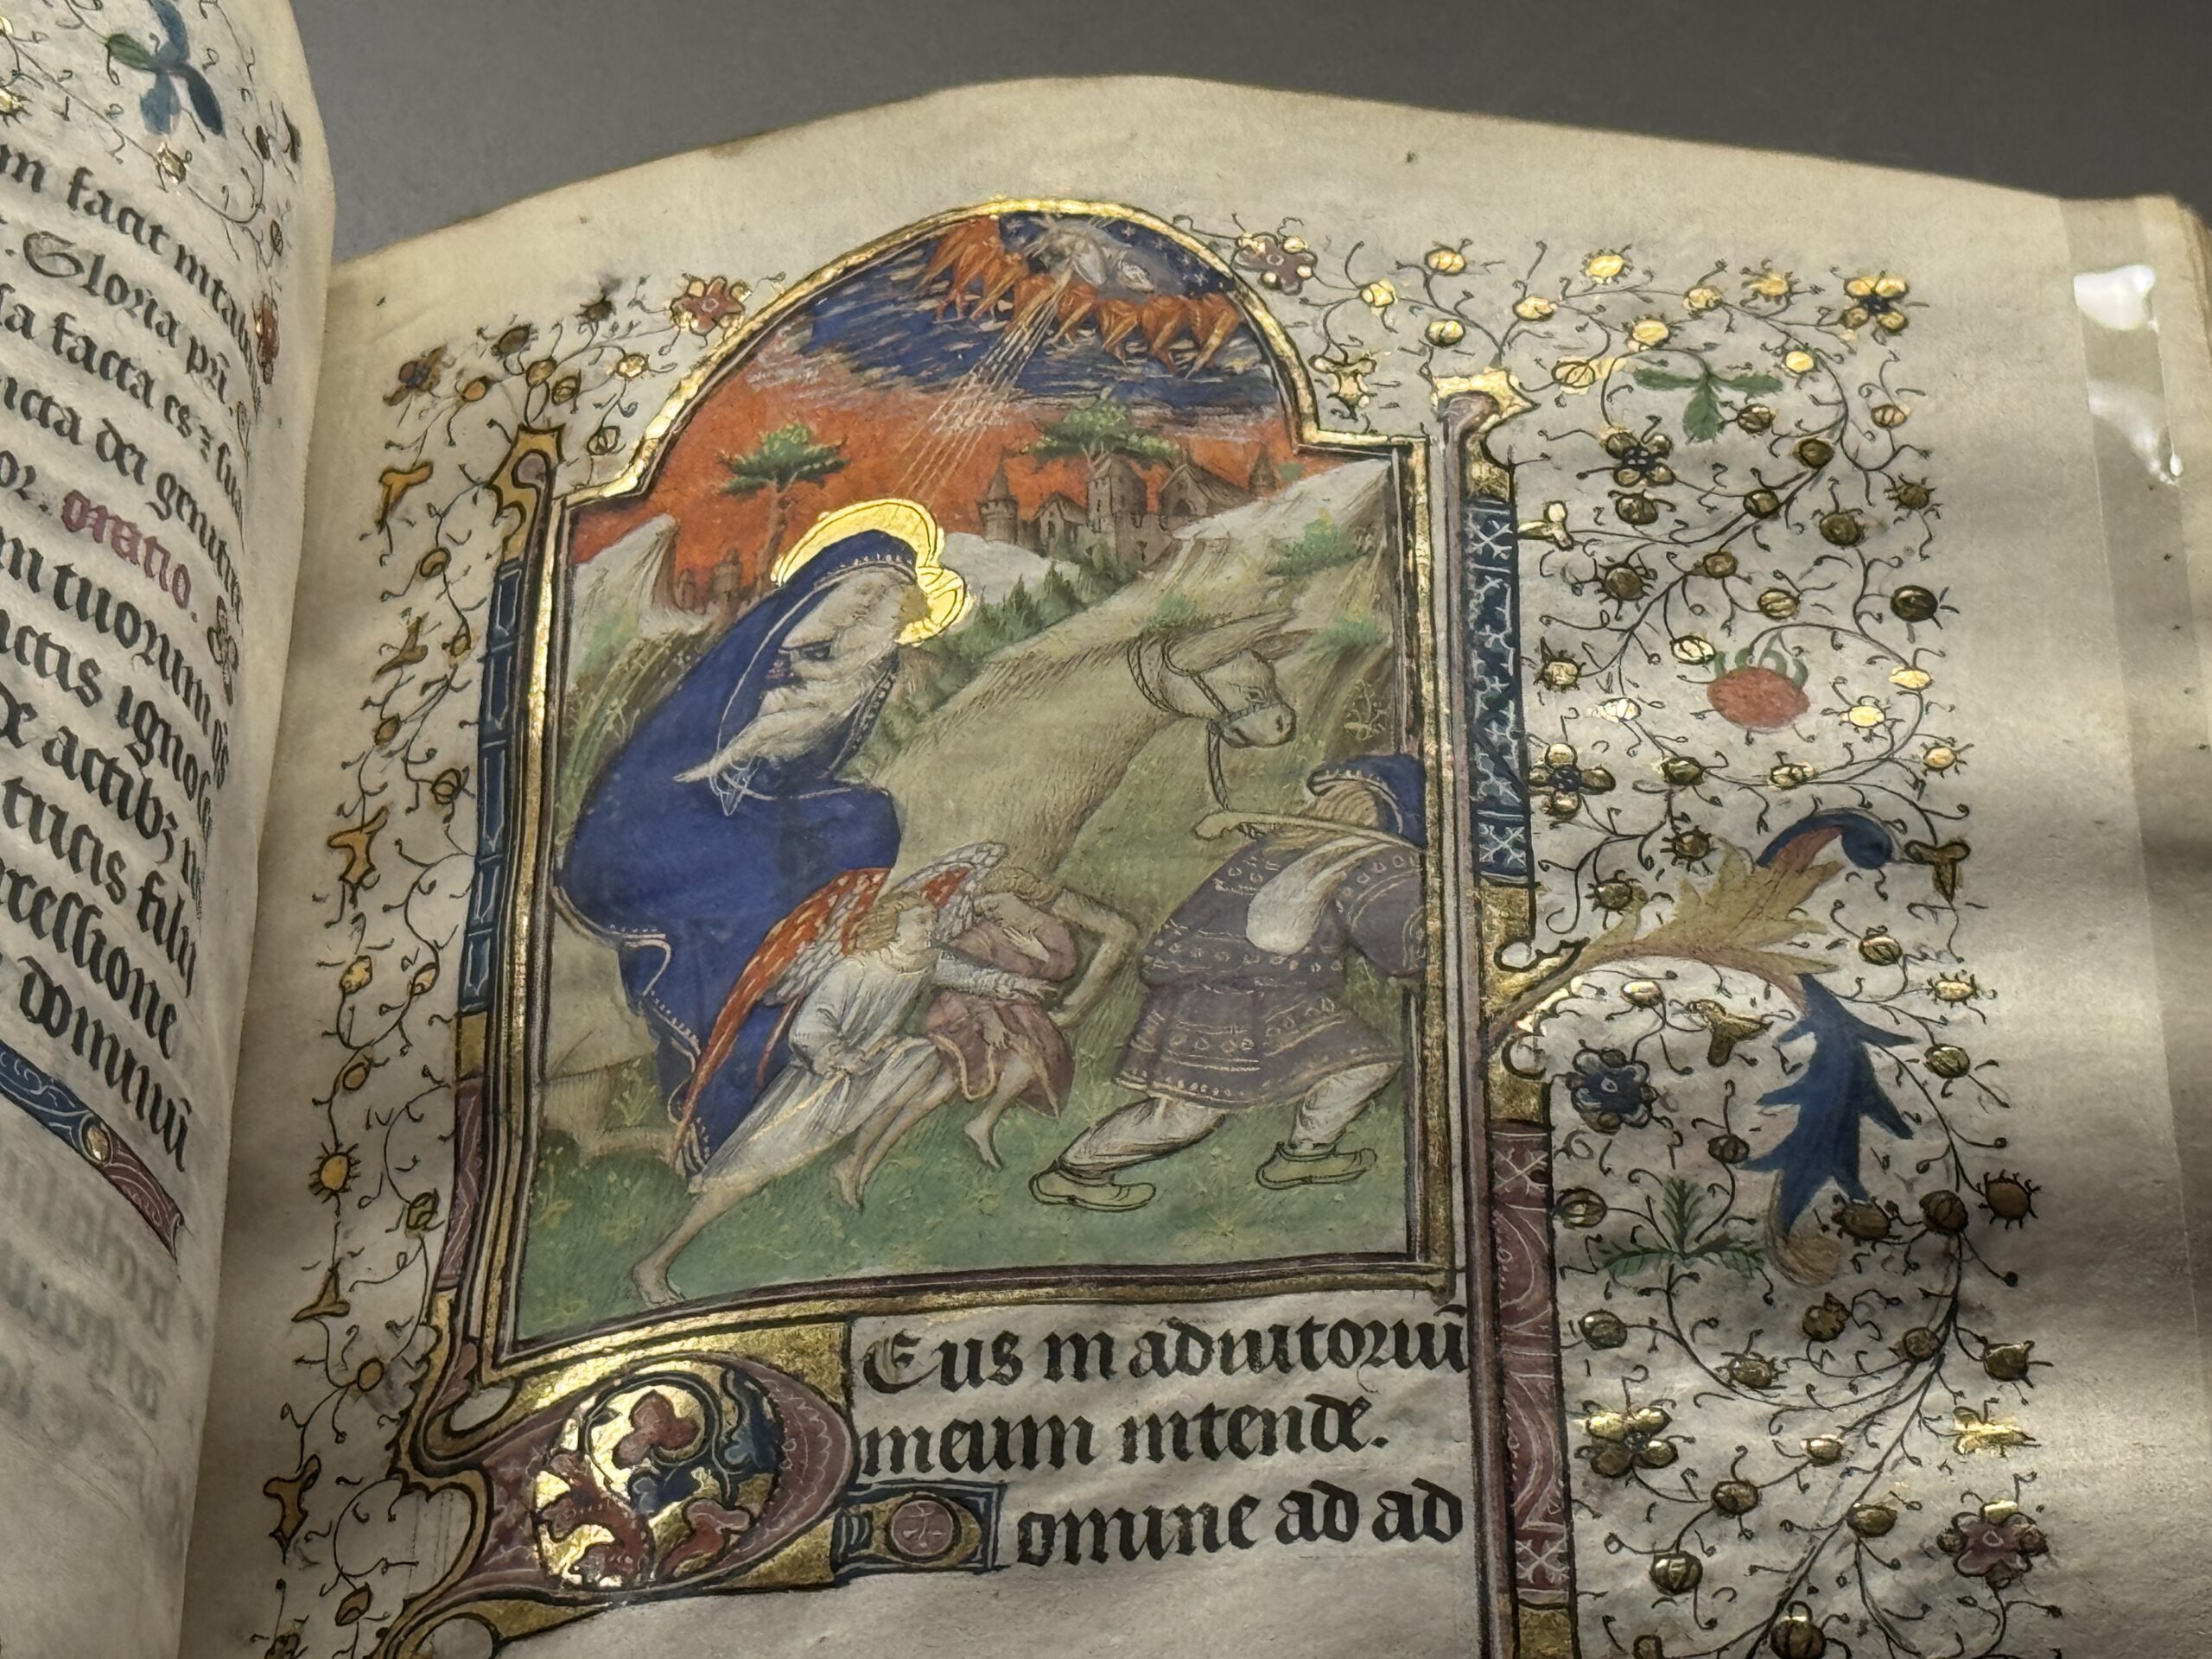 m facit mirab
. Gloria pri.
la facta es ⁊ sua
ncta dei genitrix
or. oratio.
m tuorum qs
ctis ignosce
actibꝫ
tricis filii
rcessione
dominū
Deus in adiutoriū
meum intende.
Domine ad ad